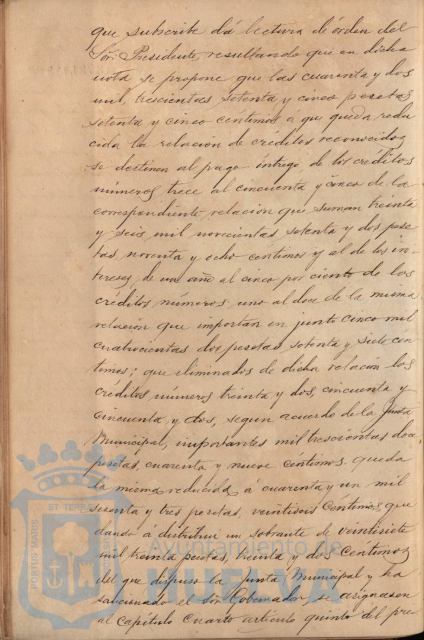 que subscribe dá lectura de órden del
Sor. Presidente, resultando que en dicha
nota se propone que las cuarenta y dos
mil, trescientas setenta y cinco pesetas
setenta y cinco centimos a que queda redu
cida la relacion de créditos reconocidos
se destinen al pago integro de los créditos
números trece al cincuenta y cinco de la
correspondiente relacion que suman treinta
y seis mil novecientas setenta y dos pese
tas noventa y ocho centimos y al de los in-
tereses de un año al cinco por ciento de los
créditos números uno al doce de la misma
relacion que importan en junto cinco mil
cuatrocientas dos pesetas setenta y siete cen
timos; que eliminados de dicha relacion los
créditos números treinta y dos, cincuenta y
cincuenta y dos, segun acuerdo de la Junta
Municipal, importantes mil trescientas doce
pesetas, cuarenta y nueve céntimos. queda
la misma reducida á cuarenta y un mil
sesenta y tres pesetas, veintiseis céntimos, que
dando á distribuir un sobrante de veintisiete
mil treinta pesetas, treinta y dos centimos
del que dispuso la Junta Municipal y ha
sancionado el Sor. Gobernador, se asignasen
al Capítulo Cuarto artículo quinto del pre
PORTUS MARIS ET TERRAE
Ayuntamiento de
HUELVA